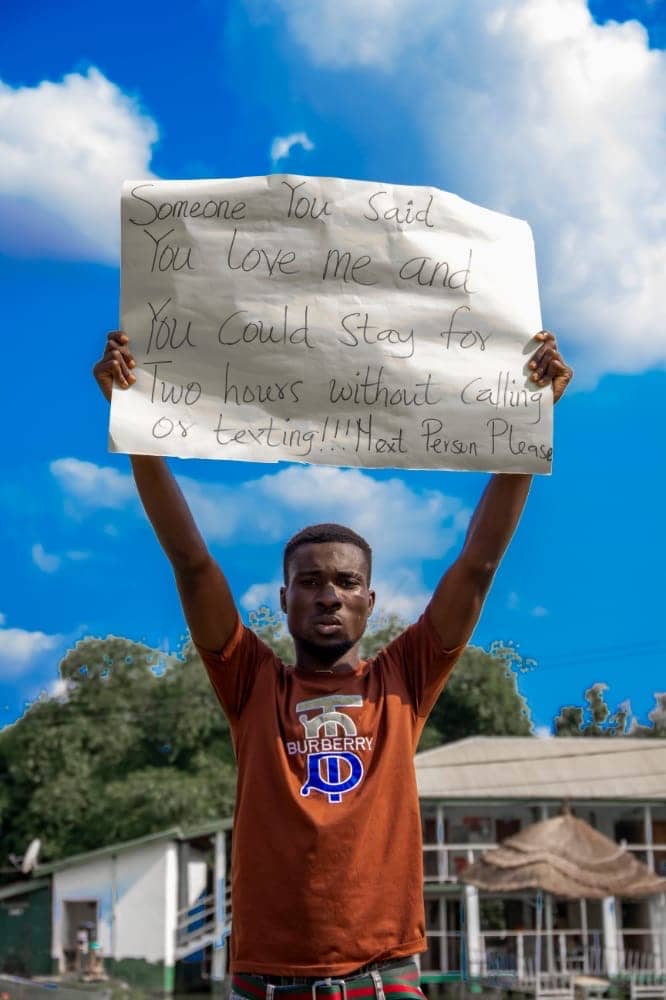 Someone You Said
You love me and
You Could Stay for
Two hours without Calling
or texting!!! Next Persun Please
BURBERRY